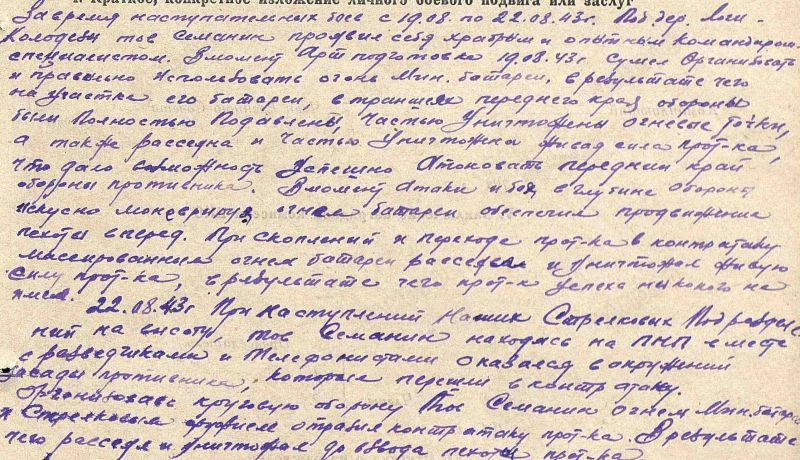 1. Краткое, конкретное изложение личного боевого подвига или заслуг
За время наступательных боев с 19.08 по 22.08.43г. Под дер.
Колодези тов Семанин проявил себя храбрым и опытным командиром
специалистом. В момент Арт подготовки 19.08.43г Сумел Организовать
и правильно использовать огонь Мин. батареи, в результате чего
на участке его батареи, в траншеях переднего края обороны
были Полностью Подавлены, Частью Уничтожены огневые точки,
а также рассеяна и Частью Уничтожена живая сила прот-ка,
что дало возможность Успешно Атаковать передний край
обороны противника. В момент атаки и боя в глубине оборон
искусно маневрируя огнем батареи обеспечил продвижение
пехоты вперед. При скоплений и переходе прот-ка в контратаку
массированным огнем батареи рассеивал и уничтожал живую
силу прот-ка, в результате чего прот-к успеха никакого не
имел.
22.08.43г При наступлений Наших Стрелковых Подразде
ний на высоту, тов Семанин находясь на ПНП вместе
с разведчиками и телефонистами оказался в окружений
засады противника, которые перешли в контратаку.
Организовав круговую оборону Тов Семанин огнем Минбатареи
и Стрелковым оружием отразил контратаку прот-ка. В результате
чего рассеял и уничтожил до взвода пехоты прот-ка